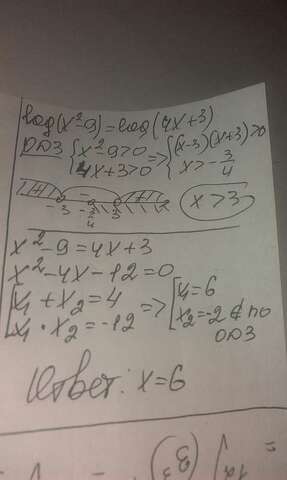 log(x²-9)=log(4x+3)
ОДЗ {x²-9>0 => {(x-3)(x+3)>0
4x+3>0 x>-3/4
+ - +
-3 -3/4 3 x>3
x²-9=4x+3
x²-4x-12=0
[x₁+x₂=4 => [x₁=6
x₁·x₂=-12 x₂=-2 ∉ по
ОДЗ
Ответ: x=6